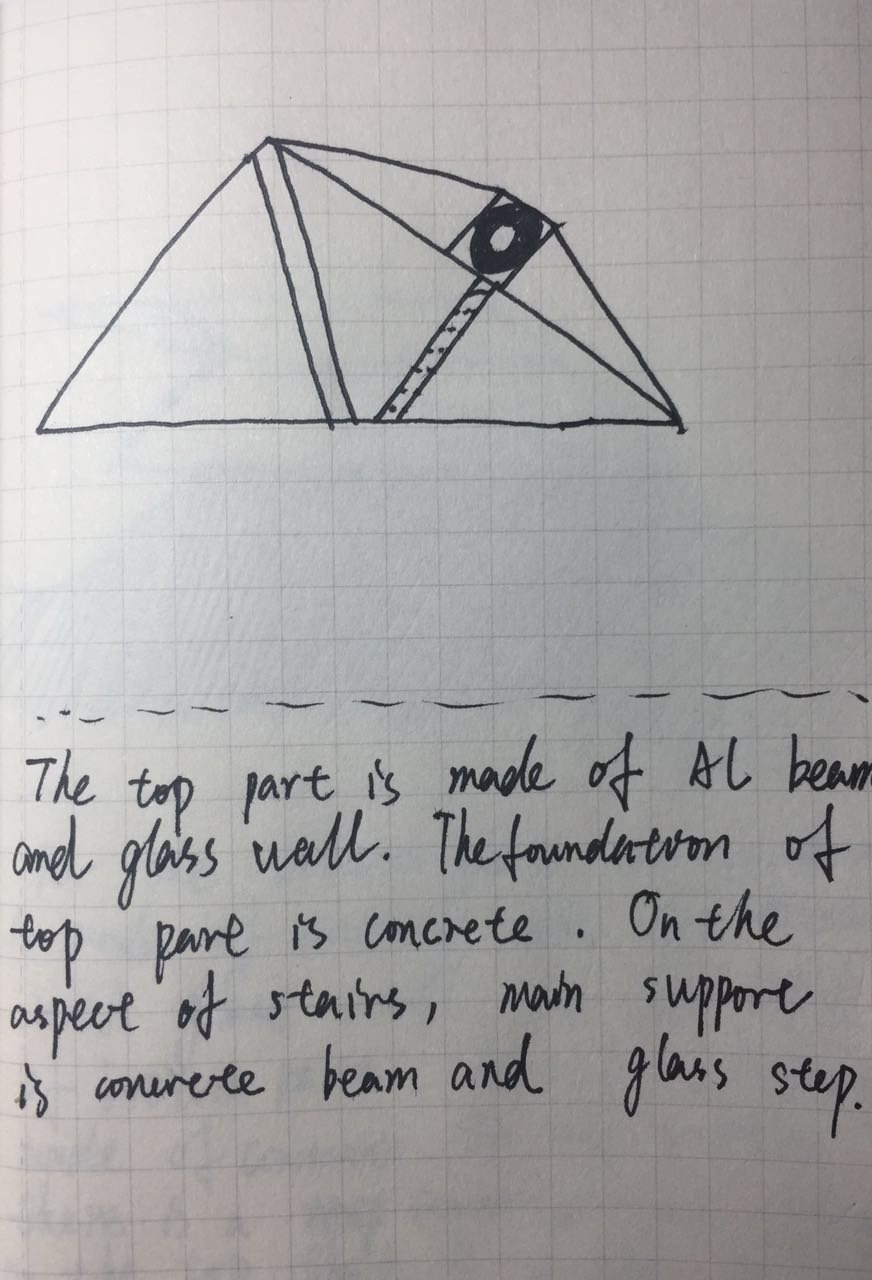 The top part is made of Al beam
and glass wall. The foundation of
top part is concrete. On the
aspect of stairs, main support
is concrete beam and glass step.